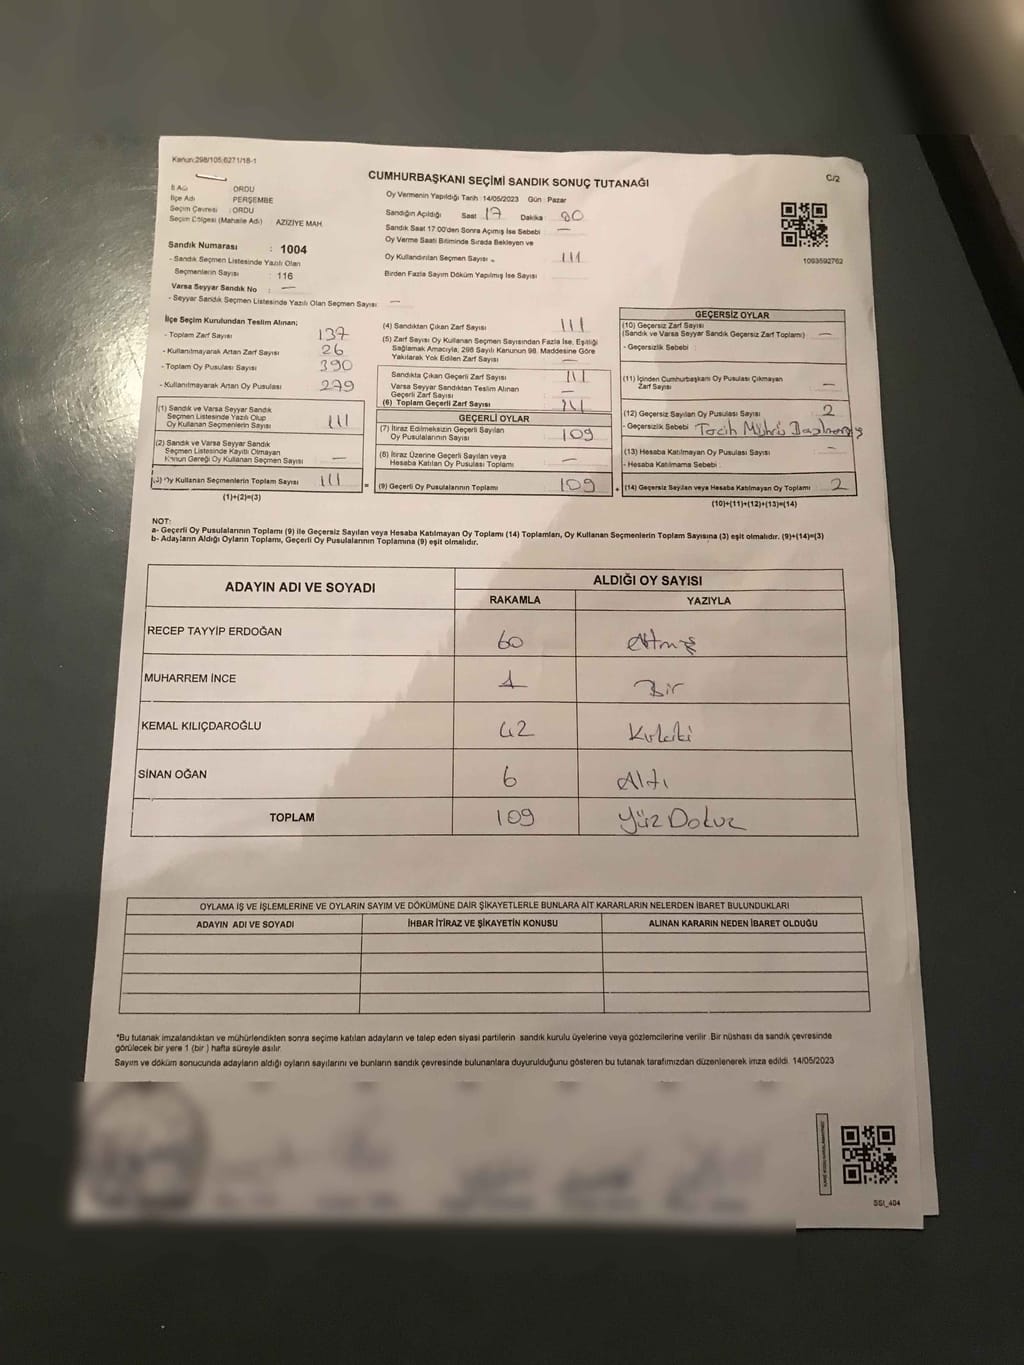 Kanun:298/105;6271/18-1
CUMHURBAŞKANI SEÇİMİ SANDIK SONUÇ TUTANAĞI
C/2
İl Adı : ORDU
İlçe Adı : PERŞEMBE
Seçim Çevresi : ORDU
Seçim Bölgesi (Mahalle Adı) : AZİZİYE MAH.
Oy Vermenin Yapıldığı Tarih : 14/05/2023 Gün : Pazar
Sandığın Açıldığı Saat 17 Dakika :
Sandık Saat 17:00'den Sonra Açımış İse Sebebi : —
Oy Verme Saati Bitiminde Sırada Bekleyen ve
Oy Kullandırılan Seçmen Sayısı : 111
Birden Fazla Sayım Döküm Yapılmış İse Sayısı
1093592762
Sandık Numarası : 1004
- Sandık Seçmen Listesinde Yazılı Olan
Seçmenlerin Sayısı : 116
Varsa Seyyar Sandık No : —
- Seyyar Sandık Seçmen Listesinde Yazılı Olan Seçmen Sayısı : —
İlçe Seçim Kurulundan Teslim Alınan;
- Toplam Zarf Sayısı 137
- Kullanılmayarak Artan Zarf Sayısı 26
- Toplam Oy Pusulası Sayısı 390
- Kullanılmayarak Artan Oy Pusulası 279
(1) Sandık ve Varsa Seyyar Sandık
Seçmen Listesinde Yazılı Olup
Oy Kullanan Seçmenlerin Sayısı 111
(2) Sandık ve Varsa Seyyar Sandık
Seçmen Listesinde Kayıtlı Olmayan
Kanun Gereği Oy Kullanan Seçmen Sayısı —
(3) Oy Kullanan Seçmenlerin Toplam Sayısı 111 =
(1)+(2)=(3)
(4) Sandıktan Çıkan Zarf Sayısı 111
(5) Zarf Sayısı Oy Kullanan Seçmen Sayısından Fazla İse, Eşitliği
Sağlamak Amacıyla, 298 Sayılı Kanunun 98. Maddesine Göre
Yakılarak Yok Edilen Zarf Sayısı —
Sandıkta Çıkan Geçerli Zarf Sayısı 111
Varsa Seyyar Sandıktan Teslim Alınan
Geçerli Zarf Sayısı —
(6) Toplam Geçerli Zarf Sayısı 111
GEÇERLİ OYLAR
(7) İtiraz Edilmeksizin Geçerli Sayılan
Oy Pusulalarının Sayısı 109
(8) İtiraz Üzerine Geçerli Sayılan veya
Hesaba Katılan Oy Pusulası Toplamı —
(9) Geçerli Oy Pusulalarının Toplamı 109 +
GEÇERSİZ OYLAR
(10) Geçersiz Zarf Sayısı
(Sandık ve Varsa Seyyar Sandık Geçersiz Zarf Toplamı) —
- Geçersizlik Sebebi :
(11) İçinden Cumhurbaşkanı Oy Pusulası Çıkmayan
Zarf Sayısı —
(12) Geçersiz Sayılan Oy Pusulası Sayısı 2
- Geçersizlik Sebebi :
(13) Hesaba Katılmayan Oy Pusulası Sayısı —
- Hesaba Katılmama Sebebi :
(14) Geçersiz Sayılan veya Hesaba Katılmayan Oy Toplamı 2
(10)+(11)+(12)+(13)=(14)
NOT:
a- Geçerli Oy Pusulalarının Toplamı (9) ile Geçersiz Sayılan veya Hesaba Katılmayan Oy Toplamı (14) Toplamları, Oy Kullanan Seçmenlerin Toplam Sayısına (3) eşit olmalıdır. (9)+(14)=(3)
b- Adayların Aldığı Oyların Toplamı, Geçerli Oy Pusulalarının Toplamına (9) eşit olmalıdır.
ADAYIN ADI VE SOYADI ALDIĞI OY SAYISI
RAKAMLA YAZIYLA
RECEP TAYYİP ERDOĞAN 60 Altmış
MUHARREM İNCE 1 Bir
KEMAL KILIÇDAROĞLU 42 Kırkiki
SİNAN OĞAN 6 Altı
TOPLAM 109 Yüz Dokuz
OYLAMA İŞ VE İŞLEMLERİNE VE OYLARIN SAYIM VE DÖKÜMÜNE DAİR ŞİKAYETLERLE BUNLARA AİT KARARLARIN NELERDEN İBARET BULUNDUKLARI
ADAYIN ADI VE SOYADI İHBAR İTİRAZ VE ŞİKAYETİN KONUSU ALINAN KARARIN NEDEN İBARET OLDUĞU
*Bu tutanak imzalandıktan ve mühürlendikten sonra seçime katılan adayların ve talep eden siyasi partilerin sandık kurulu üyelerine veya gözlemcilerine verilir. Bir nüshası da sandık çevresinde
görülecek bir yere 1 (bir ) hafta süreyle asılır.
Sayım ve döküm sonucunda adayların aldığı oyların sayılarını ve bunların sandık çevresinde bulunanlara duyurulduğunu gösteren bu tutanak tarafımızdan düzenlenerek imza edildi. 14/05/2023
SSI_404